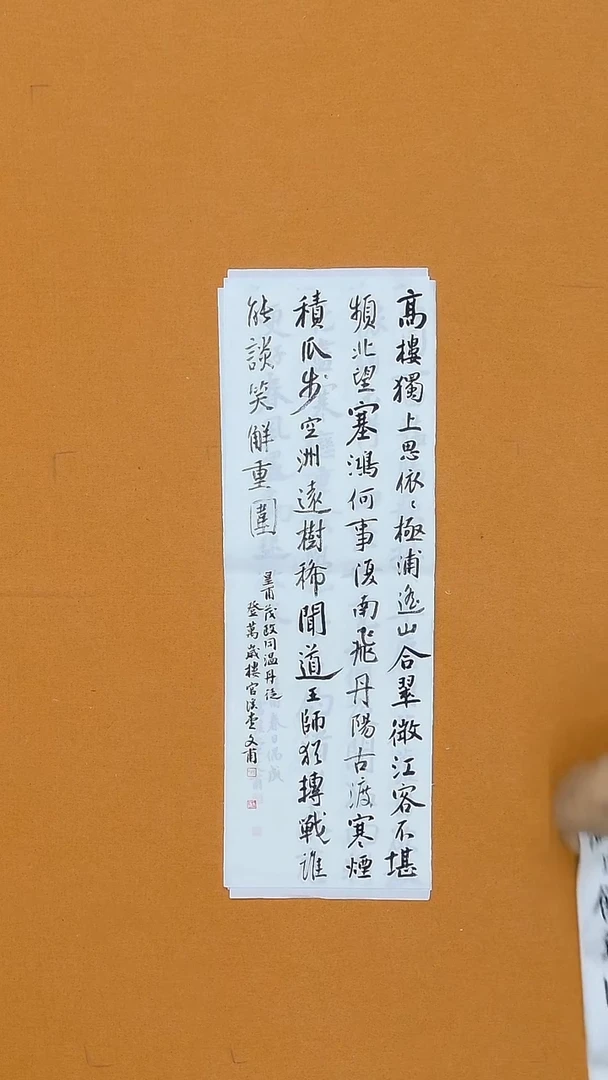 高樓獨上思依〻極浦遙山合翠微江客不堪
頻北望塞鴻何事復南飛丹陽古渡寒煙
積瓜步空洲遠樹稀聞道王師猶轉戰誰
能談笑解重圍
皇甫茂政同温丹徒
登萬歲樓文甫